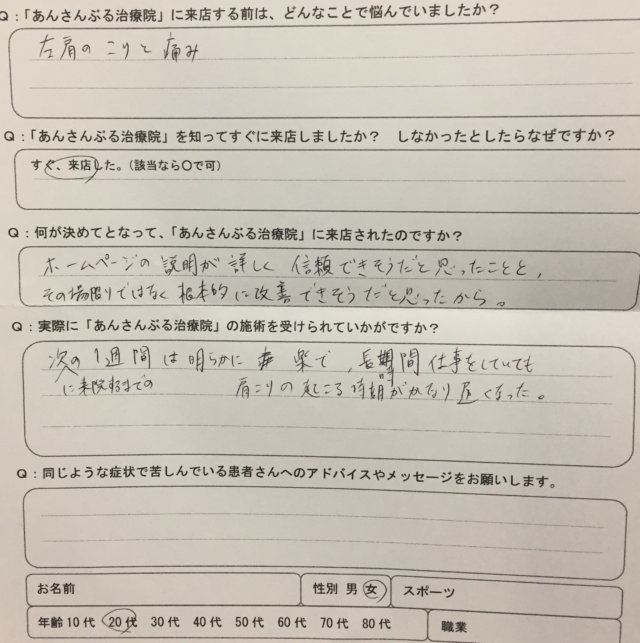 Q：「あんさんぶる治療院」に来店する前は、どんなことで悩んでいましたか？
左肩の こりと 痛み
Q：「あんさんぶる治療院」を知ってすぐに来店しましたか？　しなかったとしたらなぜですか？
すぐ、来店した。（該当なら〇で可）
Q：何が決めてとなって、「あんさんぶる治療院」に来店されたのですか？
ホームページの 説明が 詳しく 信頼できそうだと思ったことと、
その場限りではなく 根本的に改善できそうだと思ったから。
Q：実際に「あんさんぶる治療院」の施術を受けられていかがですか？
次の1週間は明らかに 楽で、長時間仕事をしていても
に来院するまでの
肩こりの起こる時期がかなり遅くなった。
Q：同じような症状で苦しんでいる患者さんへのアドバイスやメッセージをお願いします。
お名前　性別 男 女　スポーツ
年齢 10代 20代 30代 40代 50代 60代 70代 80代　職業